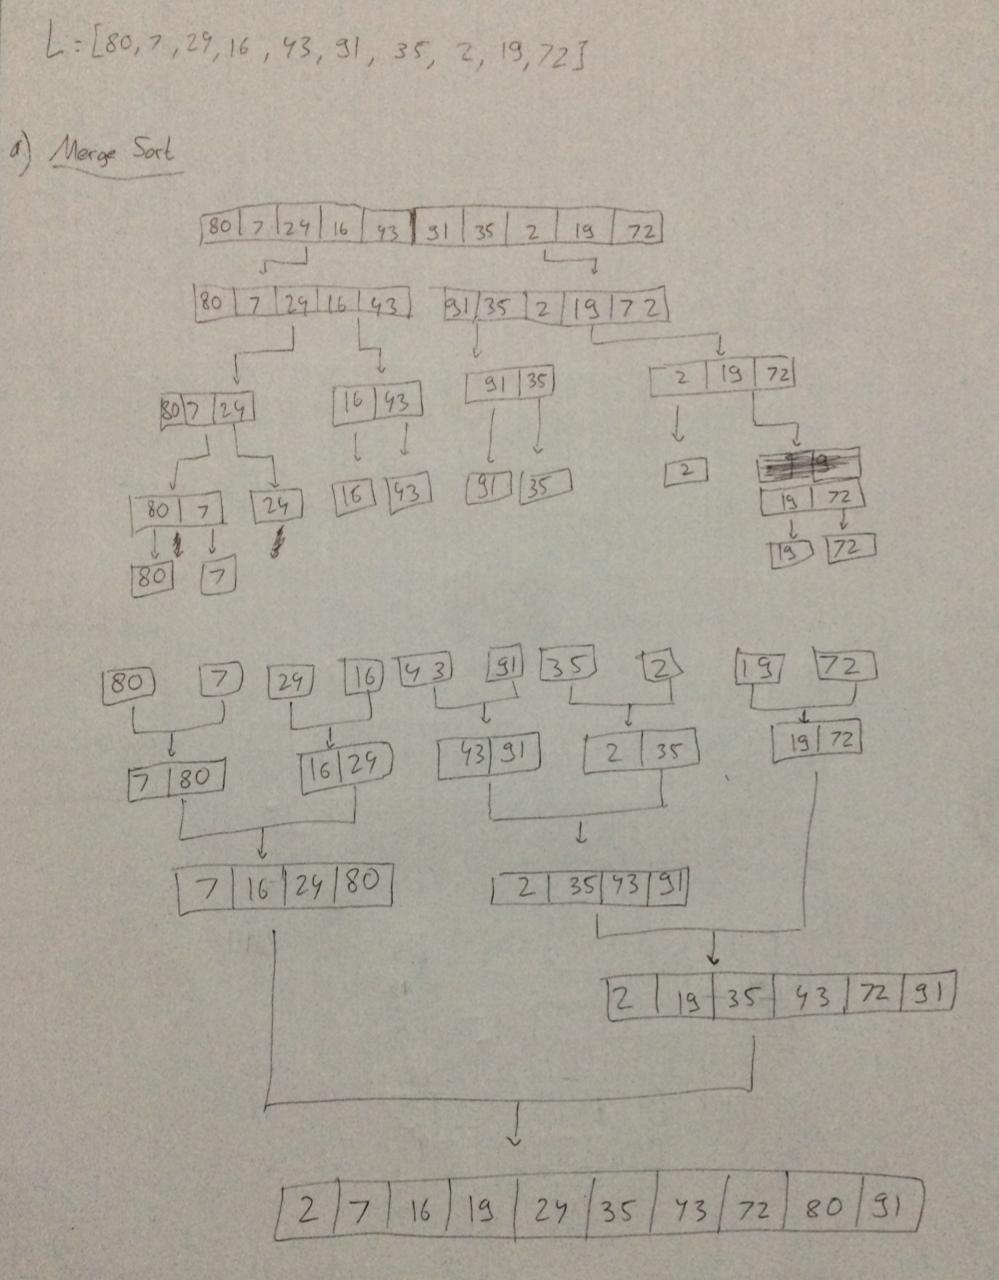 L = [80, 7, 24, 16, 43, 91, 35, 2, 19, 72]
a) Merge Sort
80 7 24 16 43 91 35 2 19 72
80 7 24 16 43 91 35 2 19 72
80 7 24 16 43 91 35 2 19 72
80 7 24 16 43 91 35 2 19 72
80 7 19 72
80 7 24 16 43 91 35 2 19 72
7 80 16 24 43 91 2 35 19 72
7 16 24 80 2 35 43 91
2 19 35 43 72 91
2 7 16 19 24 35 43 72 80 91